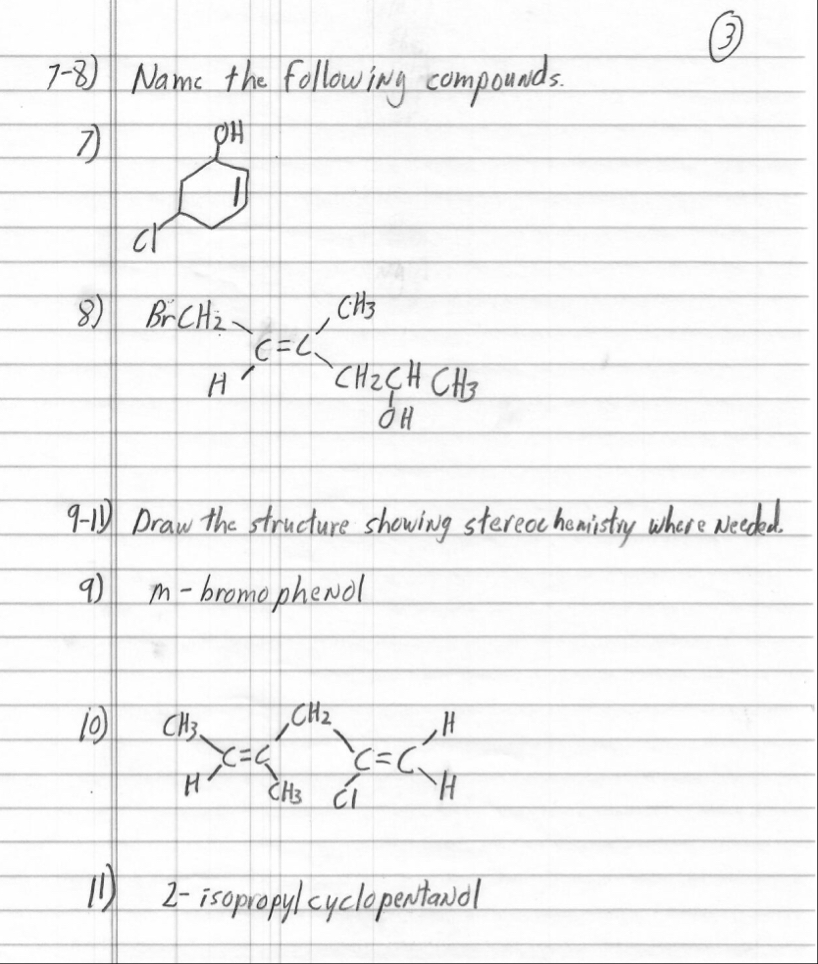 3
7-8) Name the following compounds.
7)
OH
Cl
8)
BrCH2
CH3
C=C
H
CH2CHCH3
OH
9-11) Draw the structure showing stereochemistry where Needed.
9) m-bromophenol
10)
CH3
CH2
H
C=C
C=C
H
CH3
Cl
H
11) 2-isopropylcyclopentanol